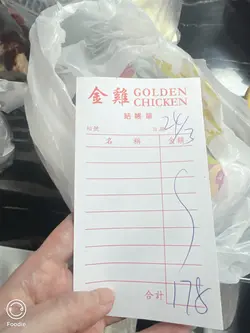 金雞 GOLDEN CHICKEN
24/3
名 稱 金額
合計 178
Foodie